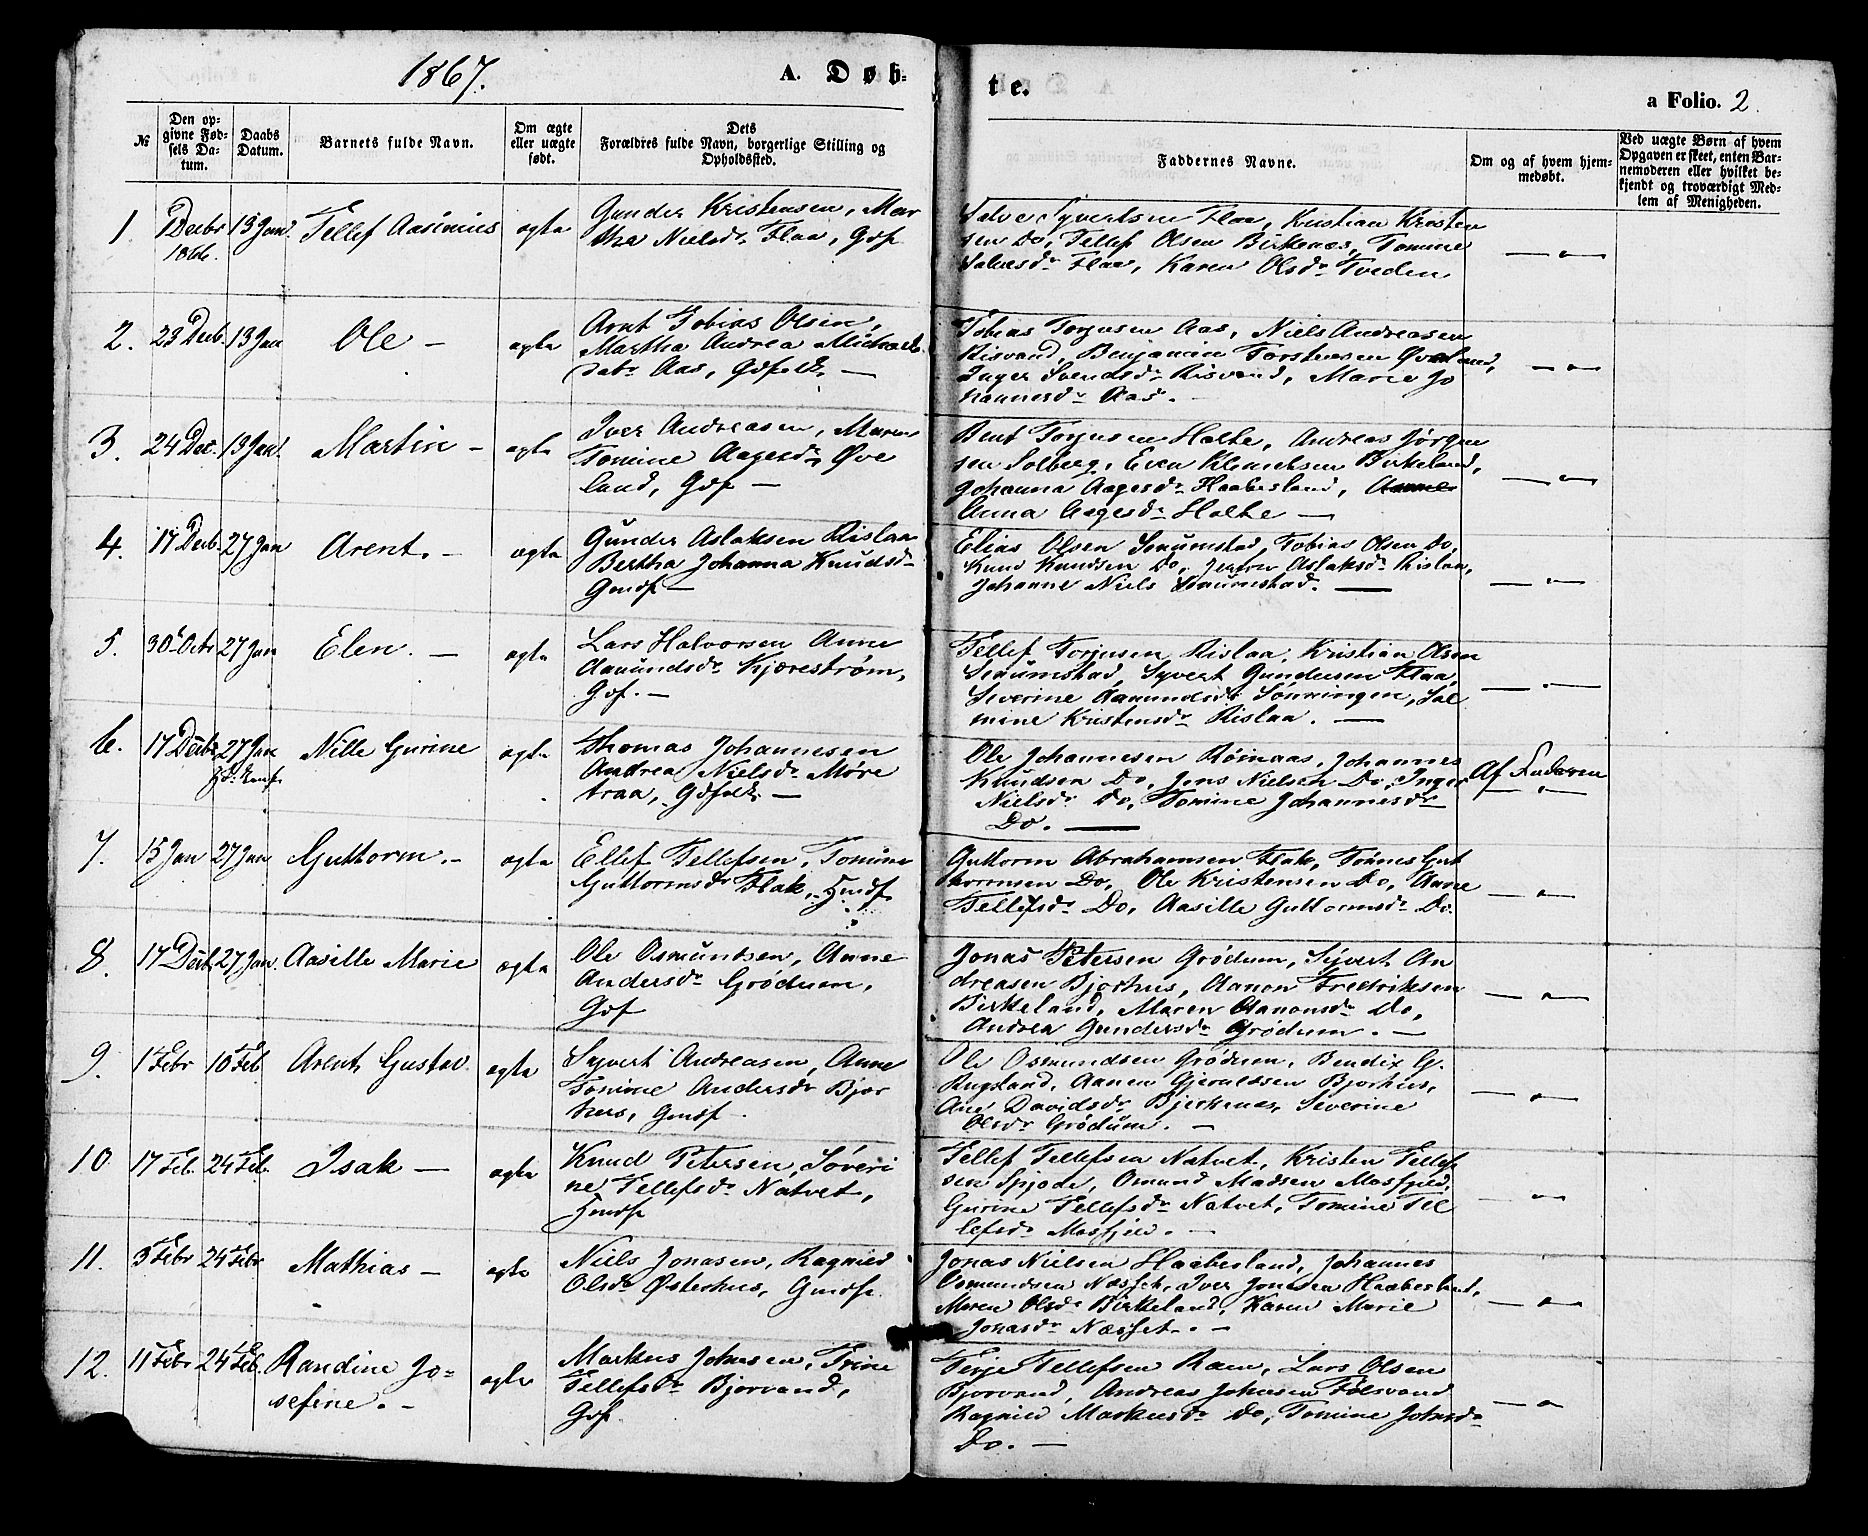 1867.
A. Døb-
te.
a Folio. 2
№
Den op-
givne Fød-
sels Da-
tum.
Daabs
Datum.
Barnets fulde Navn.
Om ægte
eller uægte
født.
Dets
Forældres fulde Navn, borgerlige Stilling og
Opholdssted.
Faddernes Navne.
Om og af hvem hjem-
medøbt.
Ved uægte Børn af hvem
Opgaven er skeet, enten Bar-
nemoderen eller hvilket be-
kjendt og troværdigt Med-
lem af Menigheden.
1 Decbr 13 Jan. Tellef Aasimius ægte
1866.
Gunder Kristensen, Mar
tha Nielsdr Flaa, Gdf
Salve Syvertsen Flaa, Kristian Kristen
sen Do, Tellef Olsen Birkenæs, Tomine
Salvesdr Flaa, Karen Olsdr Tveden
2. 23 Decb. 13 Jan Ole – ægte
Arnt Tobias Olsen,
Martha Andrea Michaels
datr Aas, Gdfolk. –
Tobias Torjusen Aas, Niels Andreasen
Risvand, Benjamin Torstensen Øveland,
Inger Svendsdr Risvand, Marie Jo
hannesdr Aas. –
3. 24 Dec. 13 Jan. Martin – ægte
Iver Andreasen, Maren
Tomine Aagesdr Øve
land, Gdf –
Bent Torjusen Holte, Andreas Jørgen
sen Solberg, Even Klemetsen Birkeland,
Johanna Aagesdr Haabesland,
Anna Aagesdr Holte –
4. 17 Decb. 27 Jan Arent. – ægte
Gunder Aslaksen Rislaa
Bertha Johanna Knudsdr
Gmdf –
Elias Olsen Senumstad, Tobias Olsen Do,
Knud Knudsen Do, Aslaksdr Rislaa,
Johanne Niels Senumstad. –
5. 30 Octr 27 Jan Elen. – ægte
Lars Halvorsen Anne
Aamundsdr Kjærestrøm,
Gdf. –
Tellef Torjusen Rislaa, Kristian Olsen
Senumstad, Syvert Gundersen Flaa,
Severine Aamundsdr Sønningen, Sal
mine Kristensdr Rislaa. –
6. 17 Decbr 27 Jan Nille Gurine ægte
Thomas Johannesen
Andrea Nielsdr Møre
traa, Gdfolk –
Ole Johannesen Røinaas, Johannes
Knudsen Do, Jens Nielsen Do, Inger
Nielsdr Do, Tomine Johannesdr
Do. –
Af Faderen
7. 15 Jan 27 Jan Guttorm. – ægte
Ellef Tellefsen, Tomine
Guttormsdr Flak, Hmdf
Guttorm Abrahamsen Flak, Tønnes Gut
tormsen Do, Ole Kristensen Do, Anne
Tellefsdr Do, Aasille Guttormsdr Do.
8. 17 Decb. 27 Jan. Aasille Marie ægte
Ole Osmundsen, Anne
Andersdr Grødum,
Gdf
Jonas Petersen Grødum, Syvert An
dreasen Bjorhus, Aanon Fredriksen
Birkeland, Maren Aanonsdr Do,
Andrea Gundersdr Grødum. –
9. 1 Febr 10 Feb. Arent Gustav ægte
Syvert Andreasen, Anne
Tomine Andersdr Bjor
hus, Gmdf.
Ole Osmundsen Grødum, Bendix G.
Rugsland, Aanen Gjeruldsen Bjorhus,
Ane Davidsdr Bjerkenæs, Severine
Olsdr Grødum. –
10 17 Feb. 24 Feb. Isak – ægte
Knud Petersen, Søveri
ne Tellefsdr Natvet,
Hmdf
Tellef Tellefsen Natvet, Kristen Tellef
sen Spjode, Osmund Madsen Mosfjeld,
Gurine Tellefsdr Natvet, Tomine Tel
lefsdr Mosfjeld. –
11. 3 Febr 24 Febr Mathias – ægte
Niels Jonasen, Ragnild
Olsdr Østerhus, Gmdf.
Jonas Nielsen Haabesland, Johannes
Osmundsen Næsset, Iver Jonasen Haabesland,
Maren Olsdr Birkeland, Karen Marie
Jonasdr Næsset. –
12. 11 Febr 24 Feb. Randine Jo-
sefine. – ægte
Markus Johnsen, Trine
Tellefsdr Bjorvand,
Gdf.
Terje Tellefsen Raen, Lars Olsen
Bjorvand, Andreas Johnsen Følsvand
Ragnild Markusdr Do, Tomine Johnsdr
Do. –